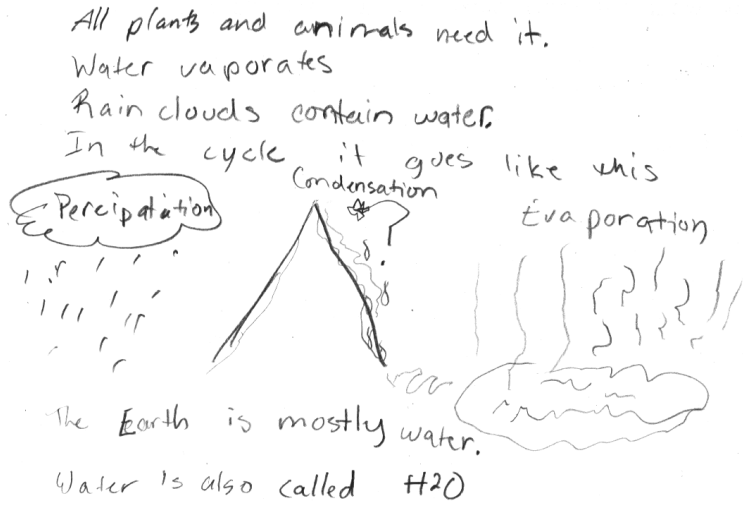 All plants and animals need it.
Water vaporates
Rain clouds contain water.
In the cycle it goes like this
Condensation
Percipatation
Evaporation
?
The Earth is mostly water.
Water is also called H2O